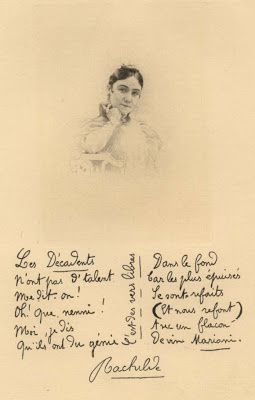 Les Décadents
N'ont pas d'talent
Me dit-on!
Oh! que, nenni!
Moi, je dis
Qu'ils ont du génie
C'est des vers libres
Dans le fond
Car les plus épuisés
Se sont refaits
(Et nous refont)
Avec un flacon
De vin Mariani.
Rachilde